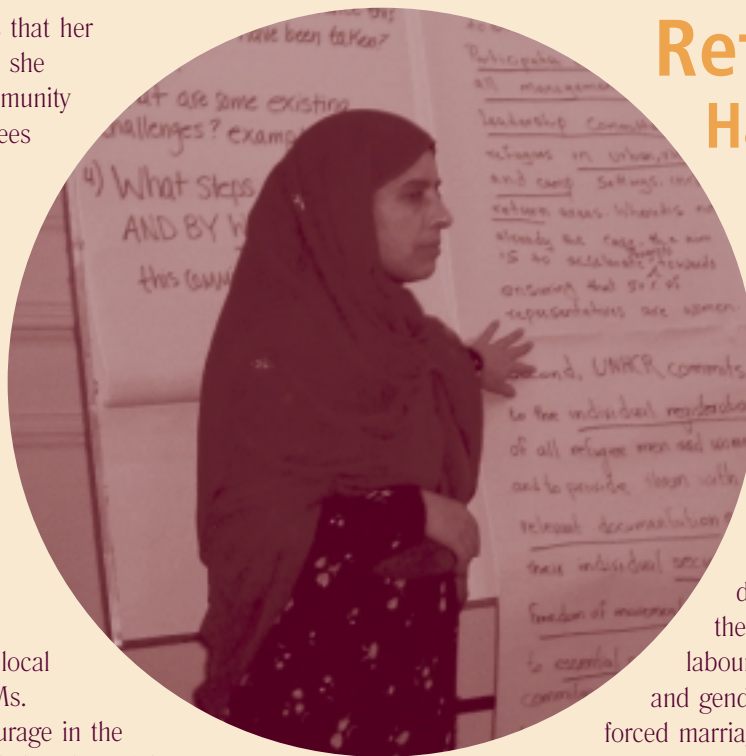 that her
she
munity
ees
local
Ms.
urage in the
have been taken?
at are some existing
hallenges? examp
4) What steps
AND BY W
this comm
Participat
all management
leadership committ
refugees in urban,
and camp settings,
return areas. Where
already the case, the aim
is to accelerate towards
ensuring that 50% of
representatives are women.
second, UNHCR commits
to the individual registration
of all refugee men and wom
and to provide them with
relevant documentation
their individual
freedom of movement
to essential
Ref
Ha
d
the
labour
and gend
forced marria